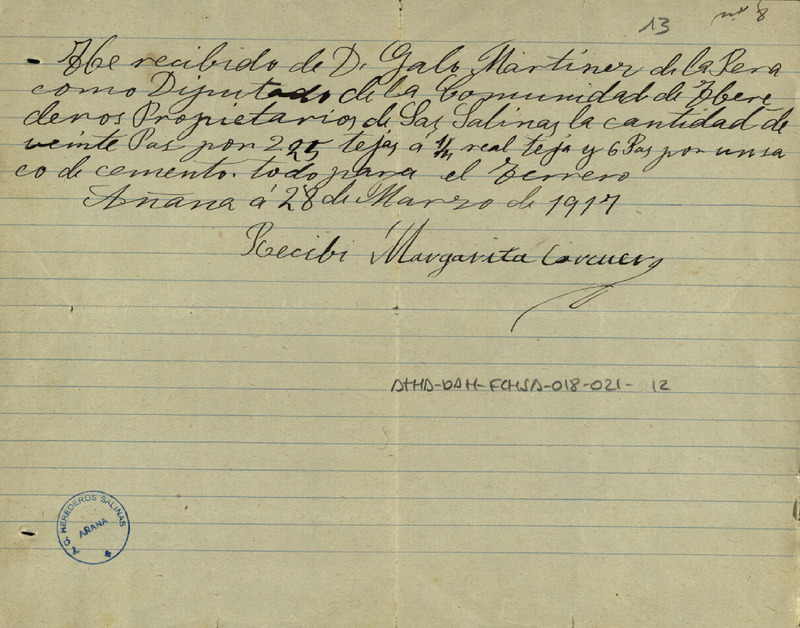 13 nº 8
He recibido de D. Galo Martinez de la Pera
como Diputado de la Comunidad de Here
deros Propietarios de Las Salinas la cantidad de
veinte Pas por 225 tejas á real teja y 6 Pas por un sa
co de cemento. todo para el Terrero
Añana á 28 de Marzo de 1917
Recibi Margarita Corcuera
ATHA-DAH-FCHSA-018-021- 12
HEREDEROS SALINAS
AÑANA